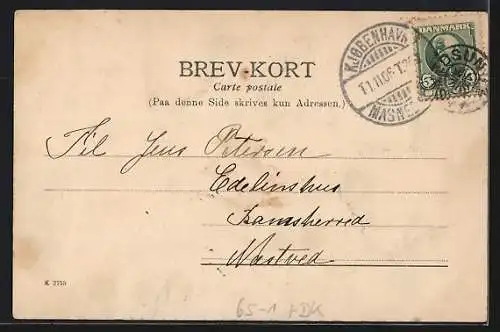 BREV-KORT
Carte postale
(Paa denne Side skrives kun Adressen.)
DANMARK
5
KJØBENHAVN
11.11.06.
MASNE
OSUN
Til Jens Petersen
Edelinshus
Bamsherred
Næstved
K 2755
65-1 + DK